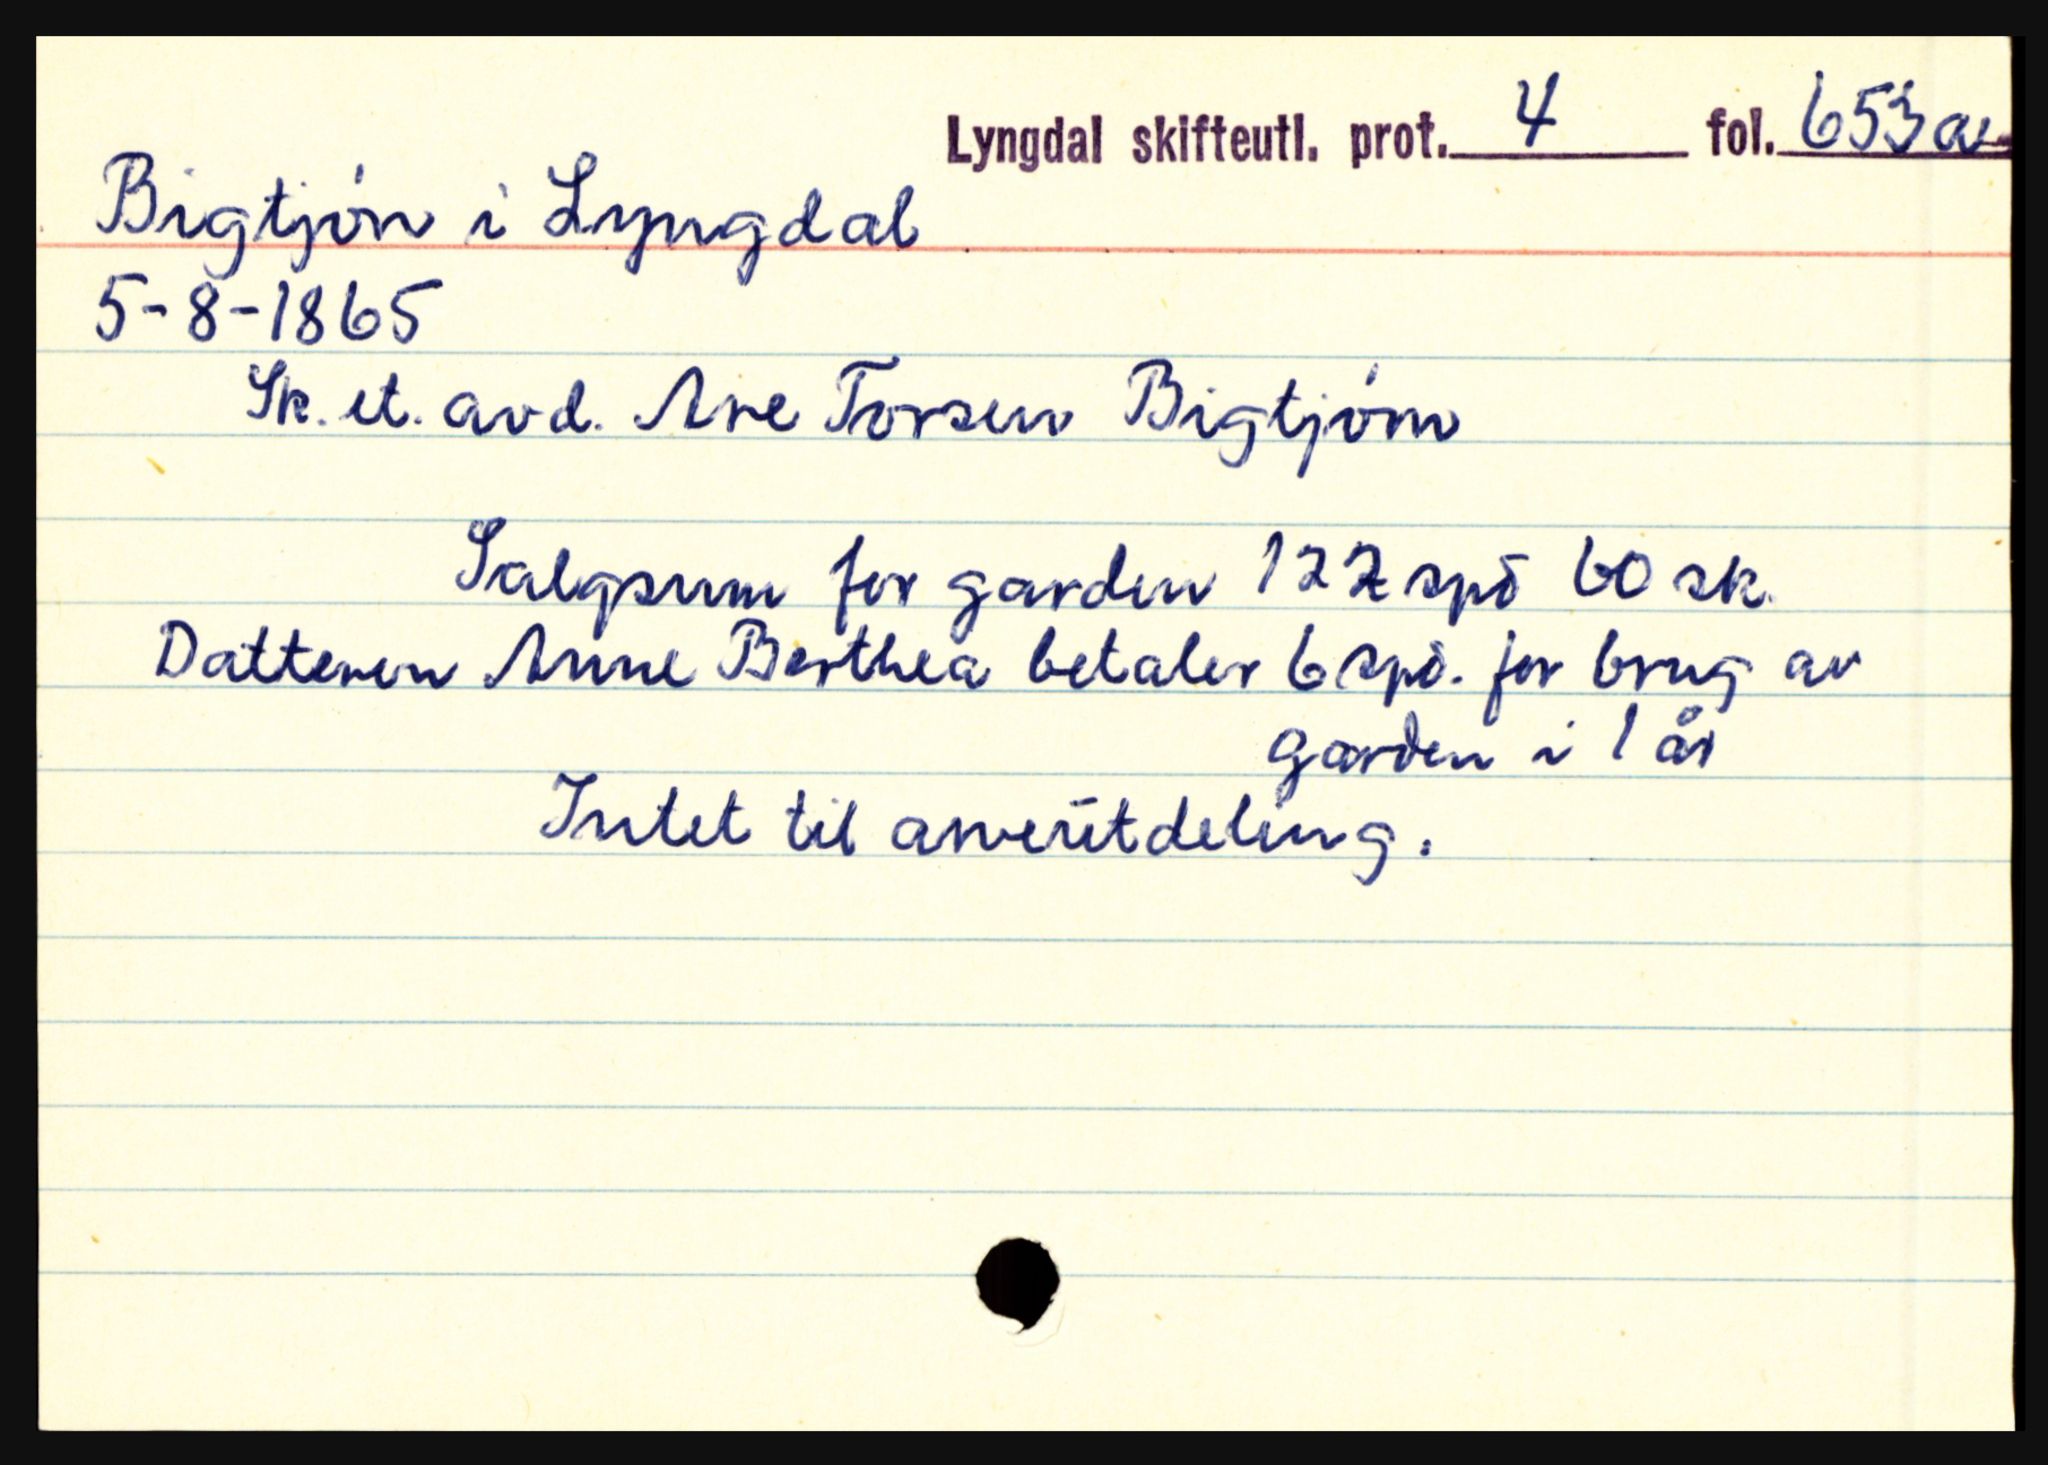 Lyngdal skifteutl. prot. 4 fol. 653a
Bigtjón i Lyngdal
5-8-1865
Sk. et. avd. Are Torsen Bigtjón
Salgsum for garden 122 spd 60 sk.
Datteren Anne Berthea betaler 6 spd. for brug av
garden i 1 år
Intet til arveutdeling.